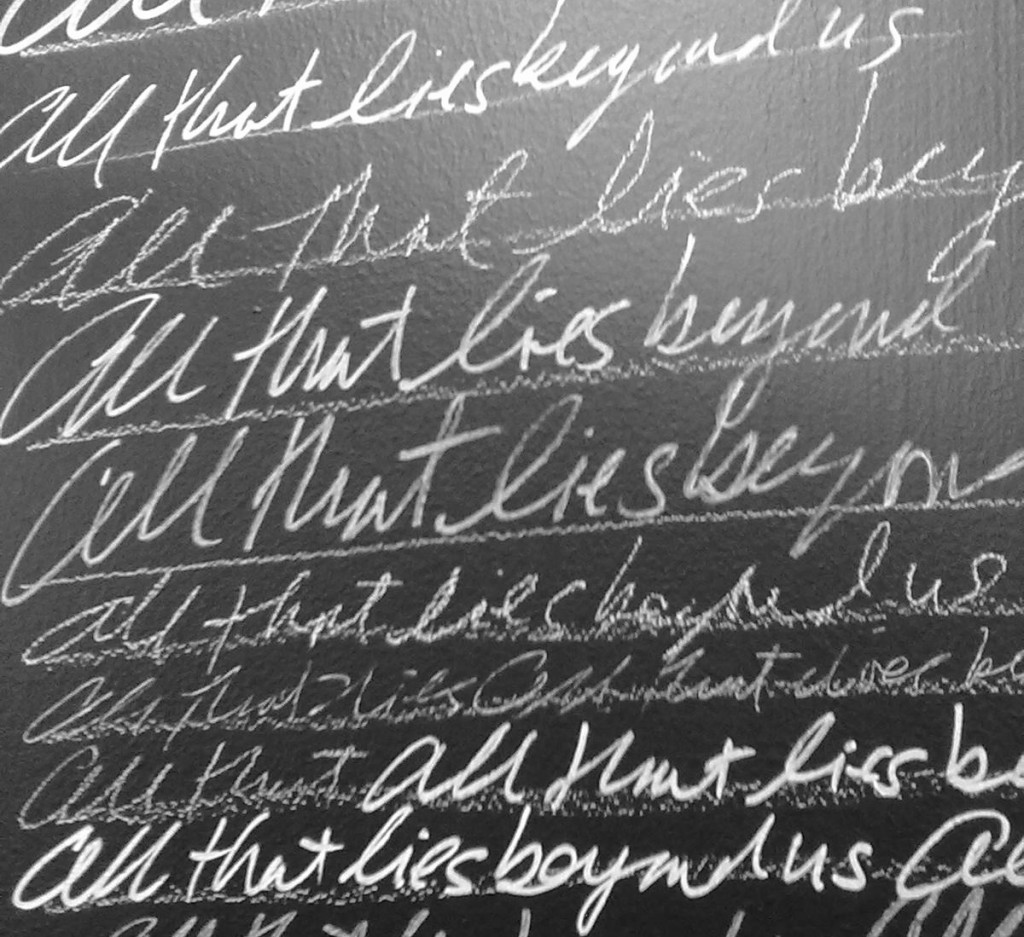 all that lies beyond us
All that lies bey
All that lies beyond
All that lies beyon
all that lies beyond us
all that lies all that lies be
All that all that lies be
all that lies beyond us al
All that